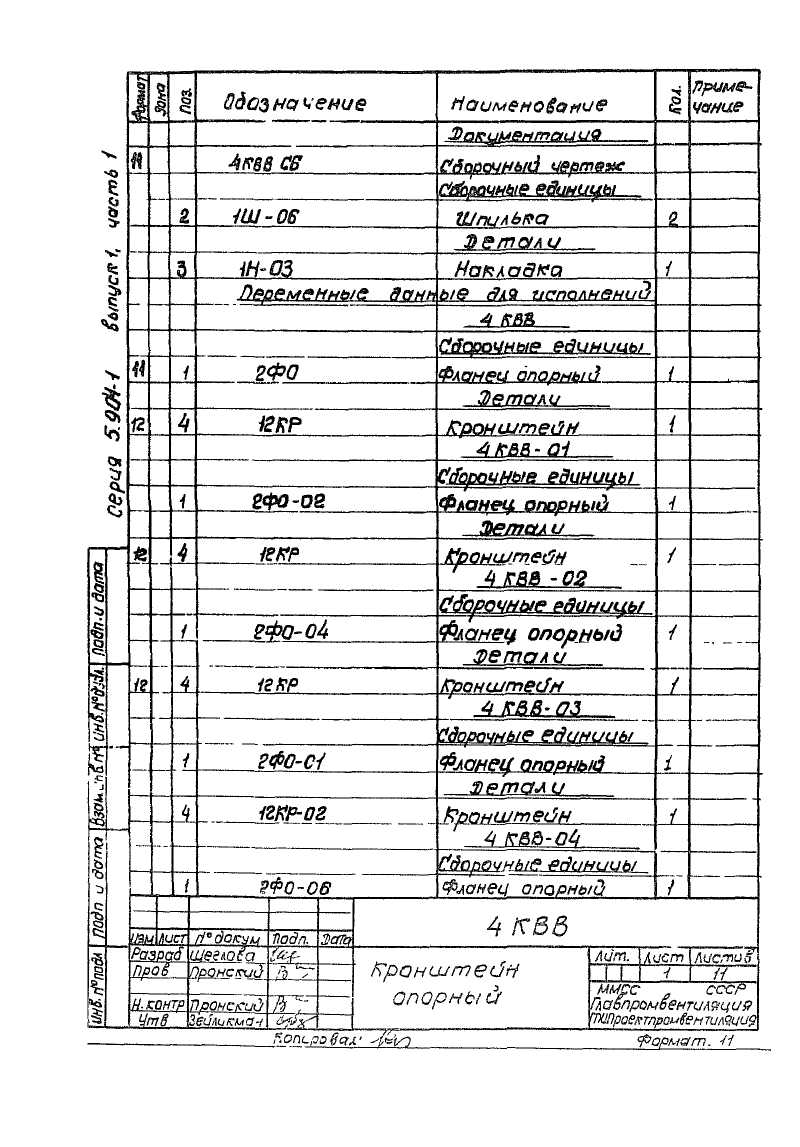 Серия 5.904-1 выпуск 1, часть 1
Формат Зона Поз. Обозначение Наименование Кол. Приме-
чание
Документация
11 4КВВ СБ Сборочный чертеж
Сборочные единицы
2 1Ш-06 Шпилька 2
Детали
3 1Н-03 Накладка 1
Переменные данные для исполнений
4 КВВ
Сборочные единицы
11 1 2ФО Фланец опорный 1
Детали
12 4 12КР Кронштейн 1
4 КВВ-01
Сборочные единицы
1 2ФО-02 Фланец опорный 1
Детали
12 4 12КР Кронштейн 1
4 КВВ-02
Сборочные единицы
1 2ФО-04 Фланец опорный 1
Детали
12 4 12КР Кронштейн 1
4 КВВ-03
Сборочные единицы
1 2ФО-01 Фланец опорный 1
Детали
4 12КР-02 Кронштейн 1
4 КВВ-04
Сборочные единицы
1 2ФО-06 Фланец опорный 1
Инв. № подл. Подп и дата Взам. инв. № Инв. № дубл. Подп. и дата
4 КВВ
Изм Лист № докум Подп. Дата
Разраб Щеглова
Пров Пронский
Н. контр Пронский
Утв Зейликман
Кронштейн
опорный
Лит. Лист Листов
1 11
ММСС СССР
Главпромвентиляция
ГПИПроектпромвентиляция
Копировал:
Формат. 11